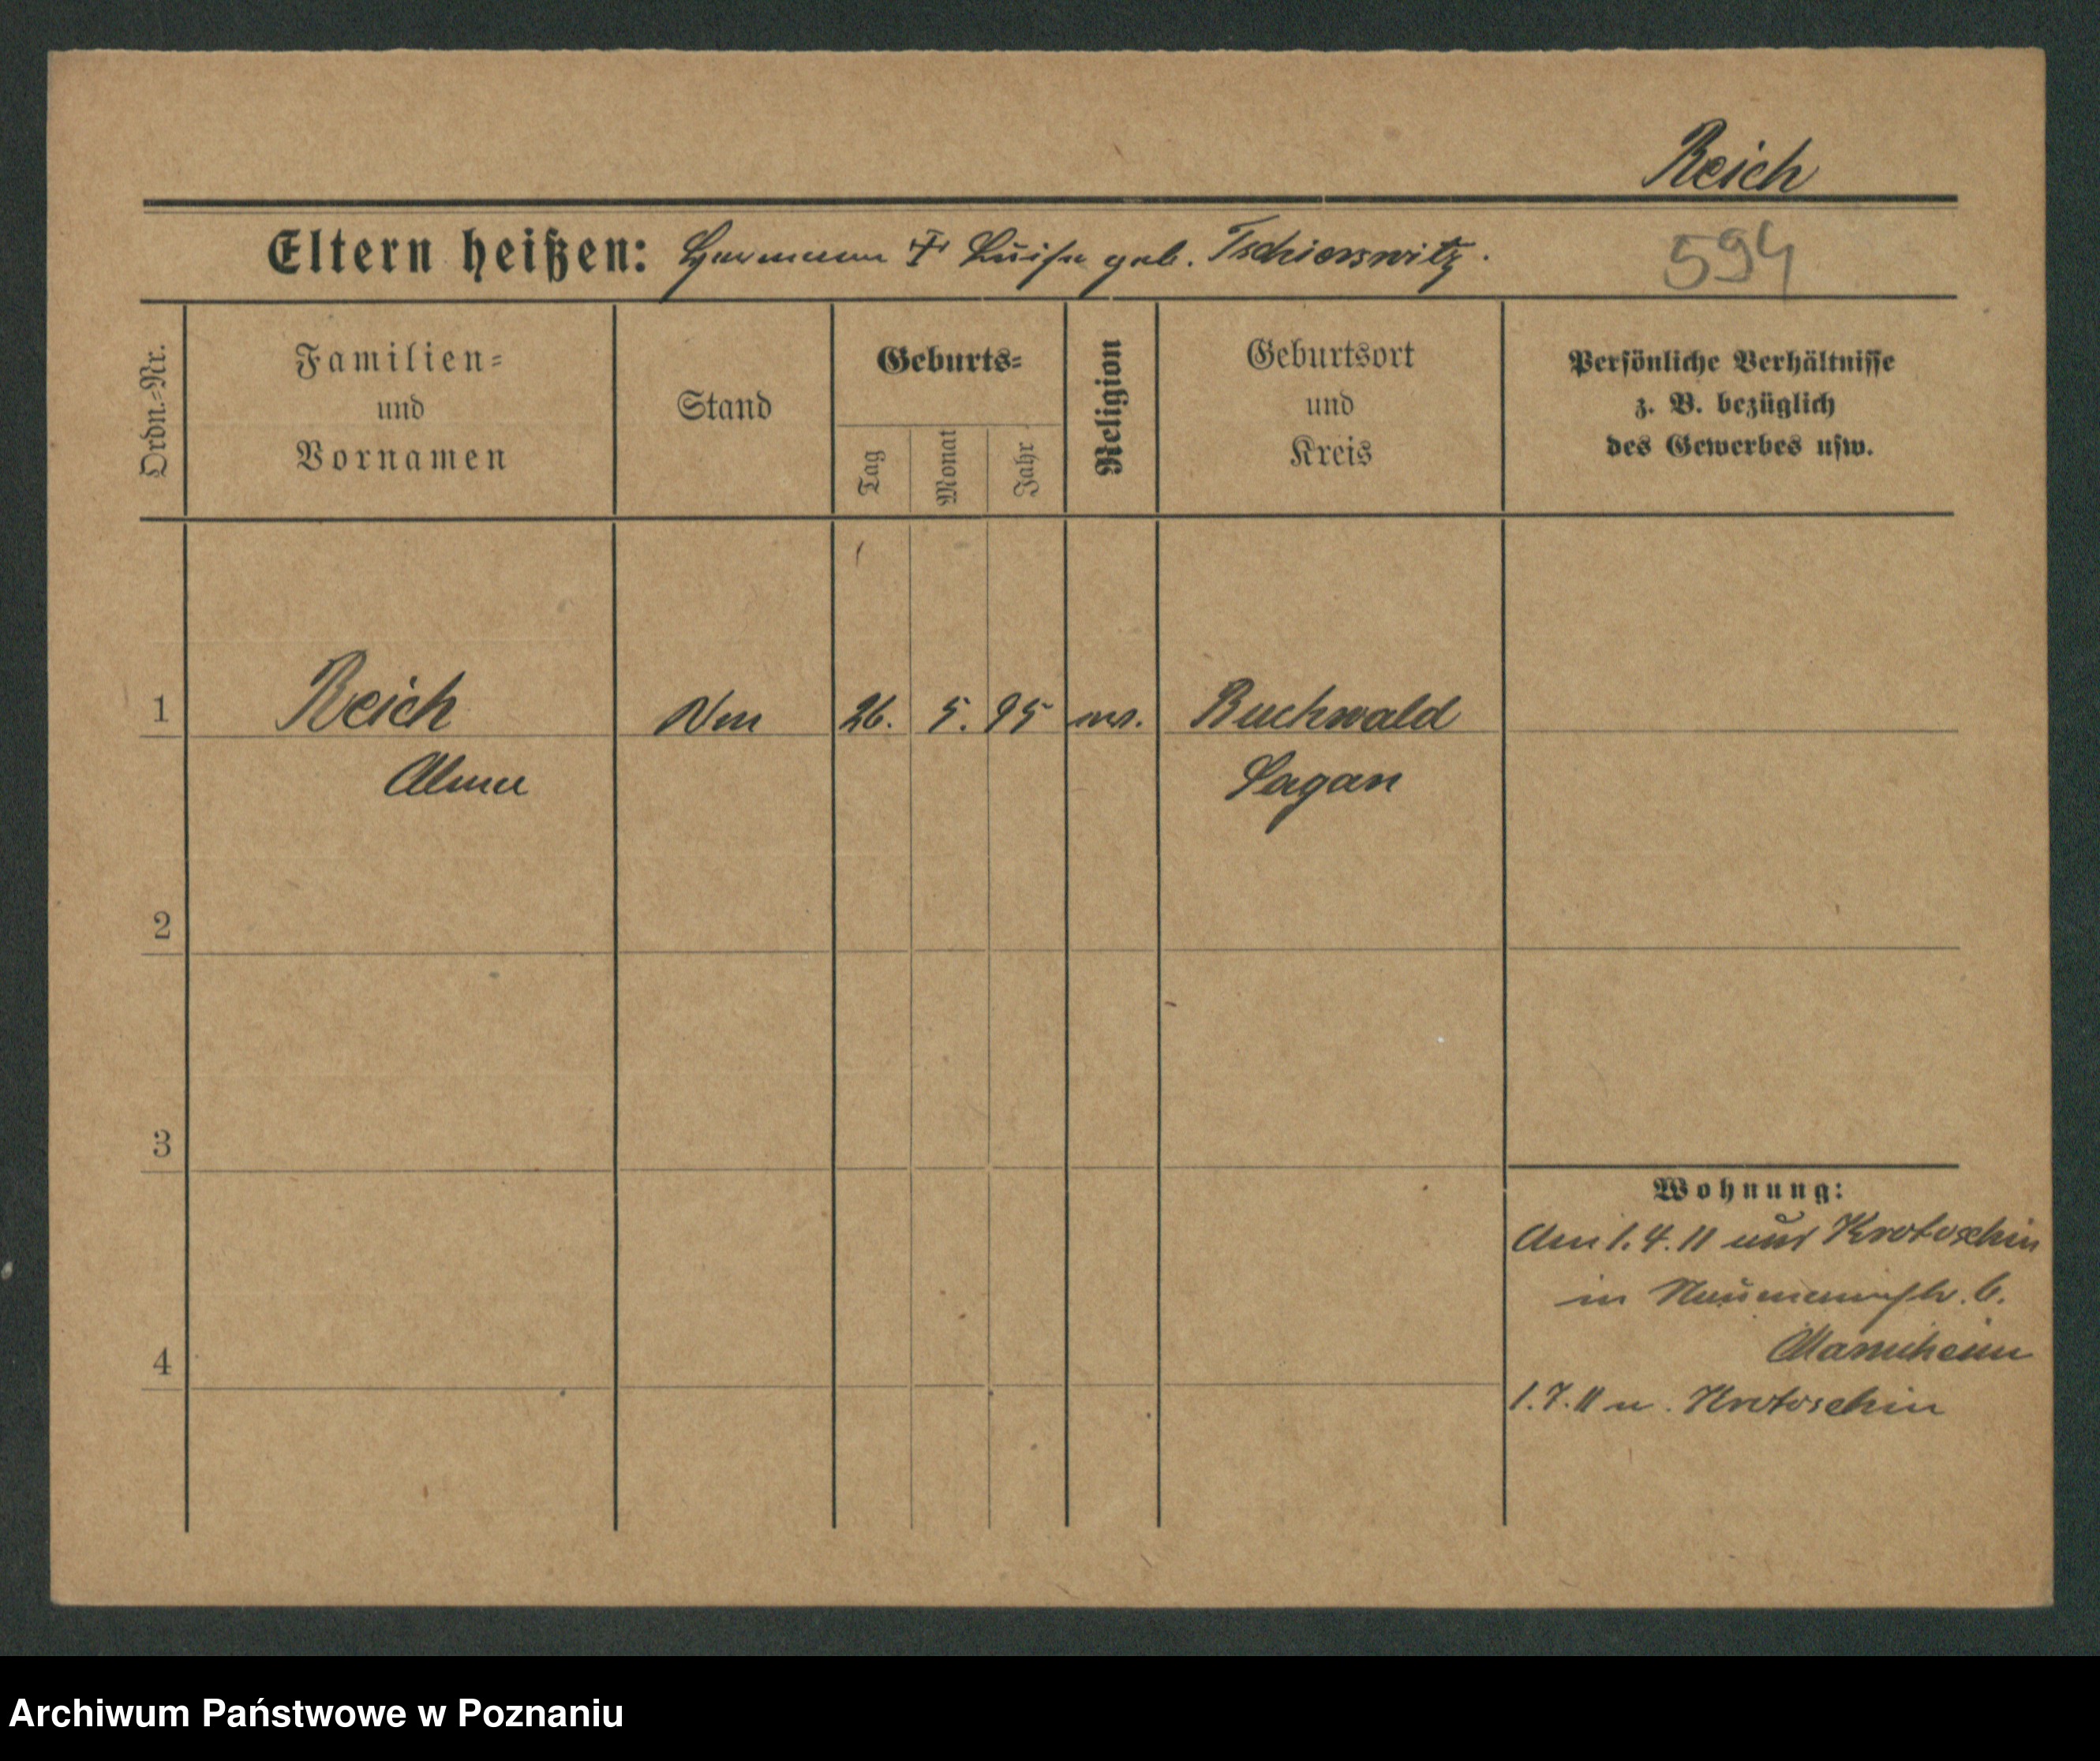 Reich
Eltern heißen: Hermann † Luise geb. Tschierswitz.
594
Ordn.-Nr.
Familien-
und
Vornamen
Stand
Geburts-
Tag
Monat
Jahr
Religion
Geburtsort
und
Kreis
Persönliche Verhältnisse
z. B. bezüglich
des Gewerbes usw.
1 Reich 26. 5. 95 Buchwald
Alma Sagan
2
3
Wohnung:
Am 1.4.11 aus Krotoschin
in Naumannstr. 6.
Mannheim
4
1.7.11 n. Krotoschin
Archiwum Państwowe w Poznaniu